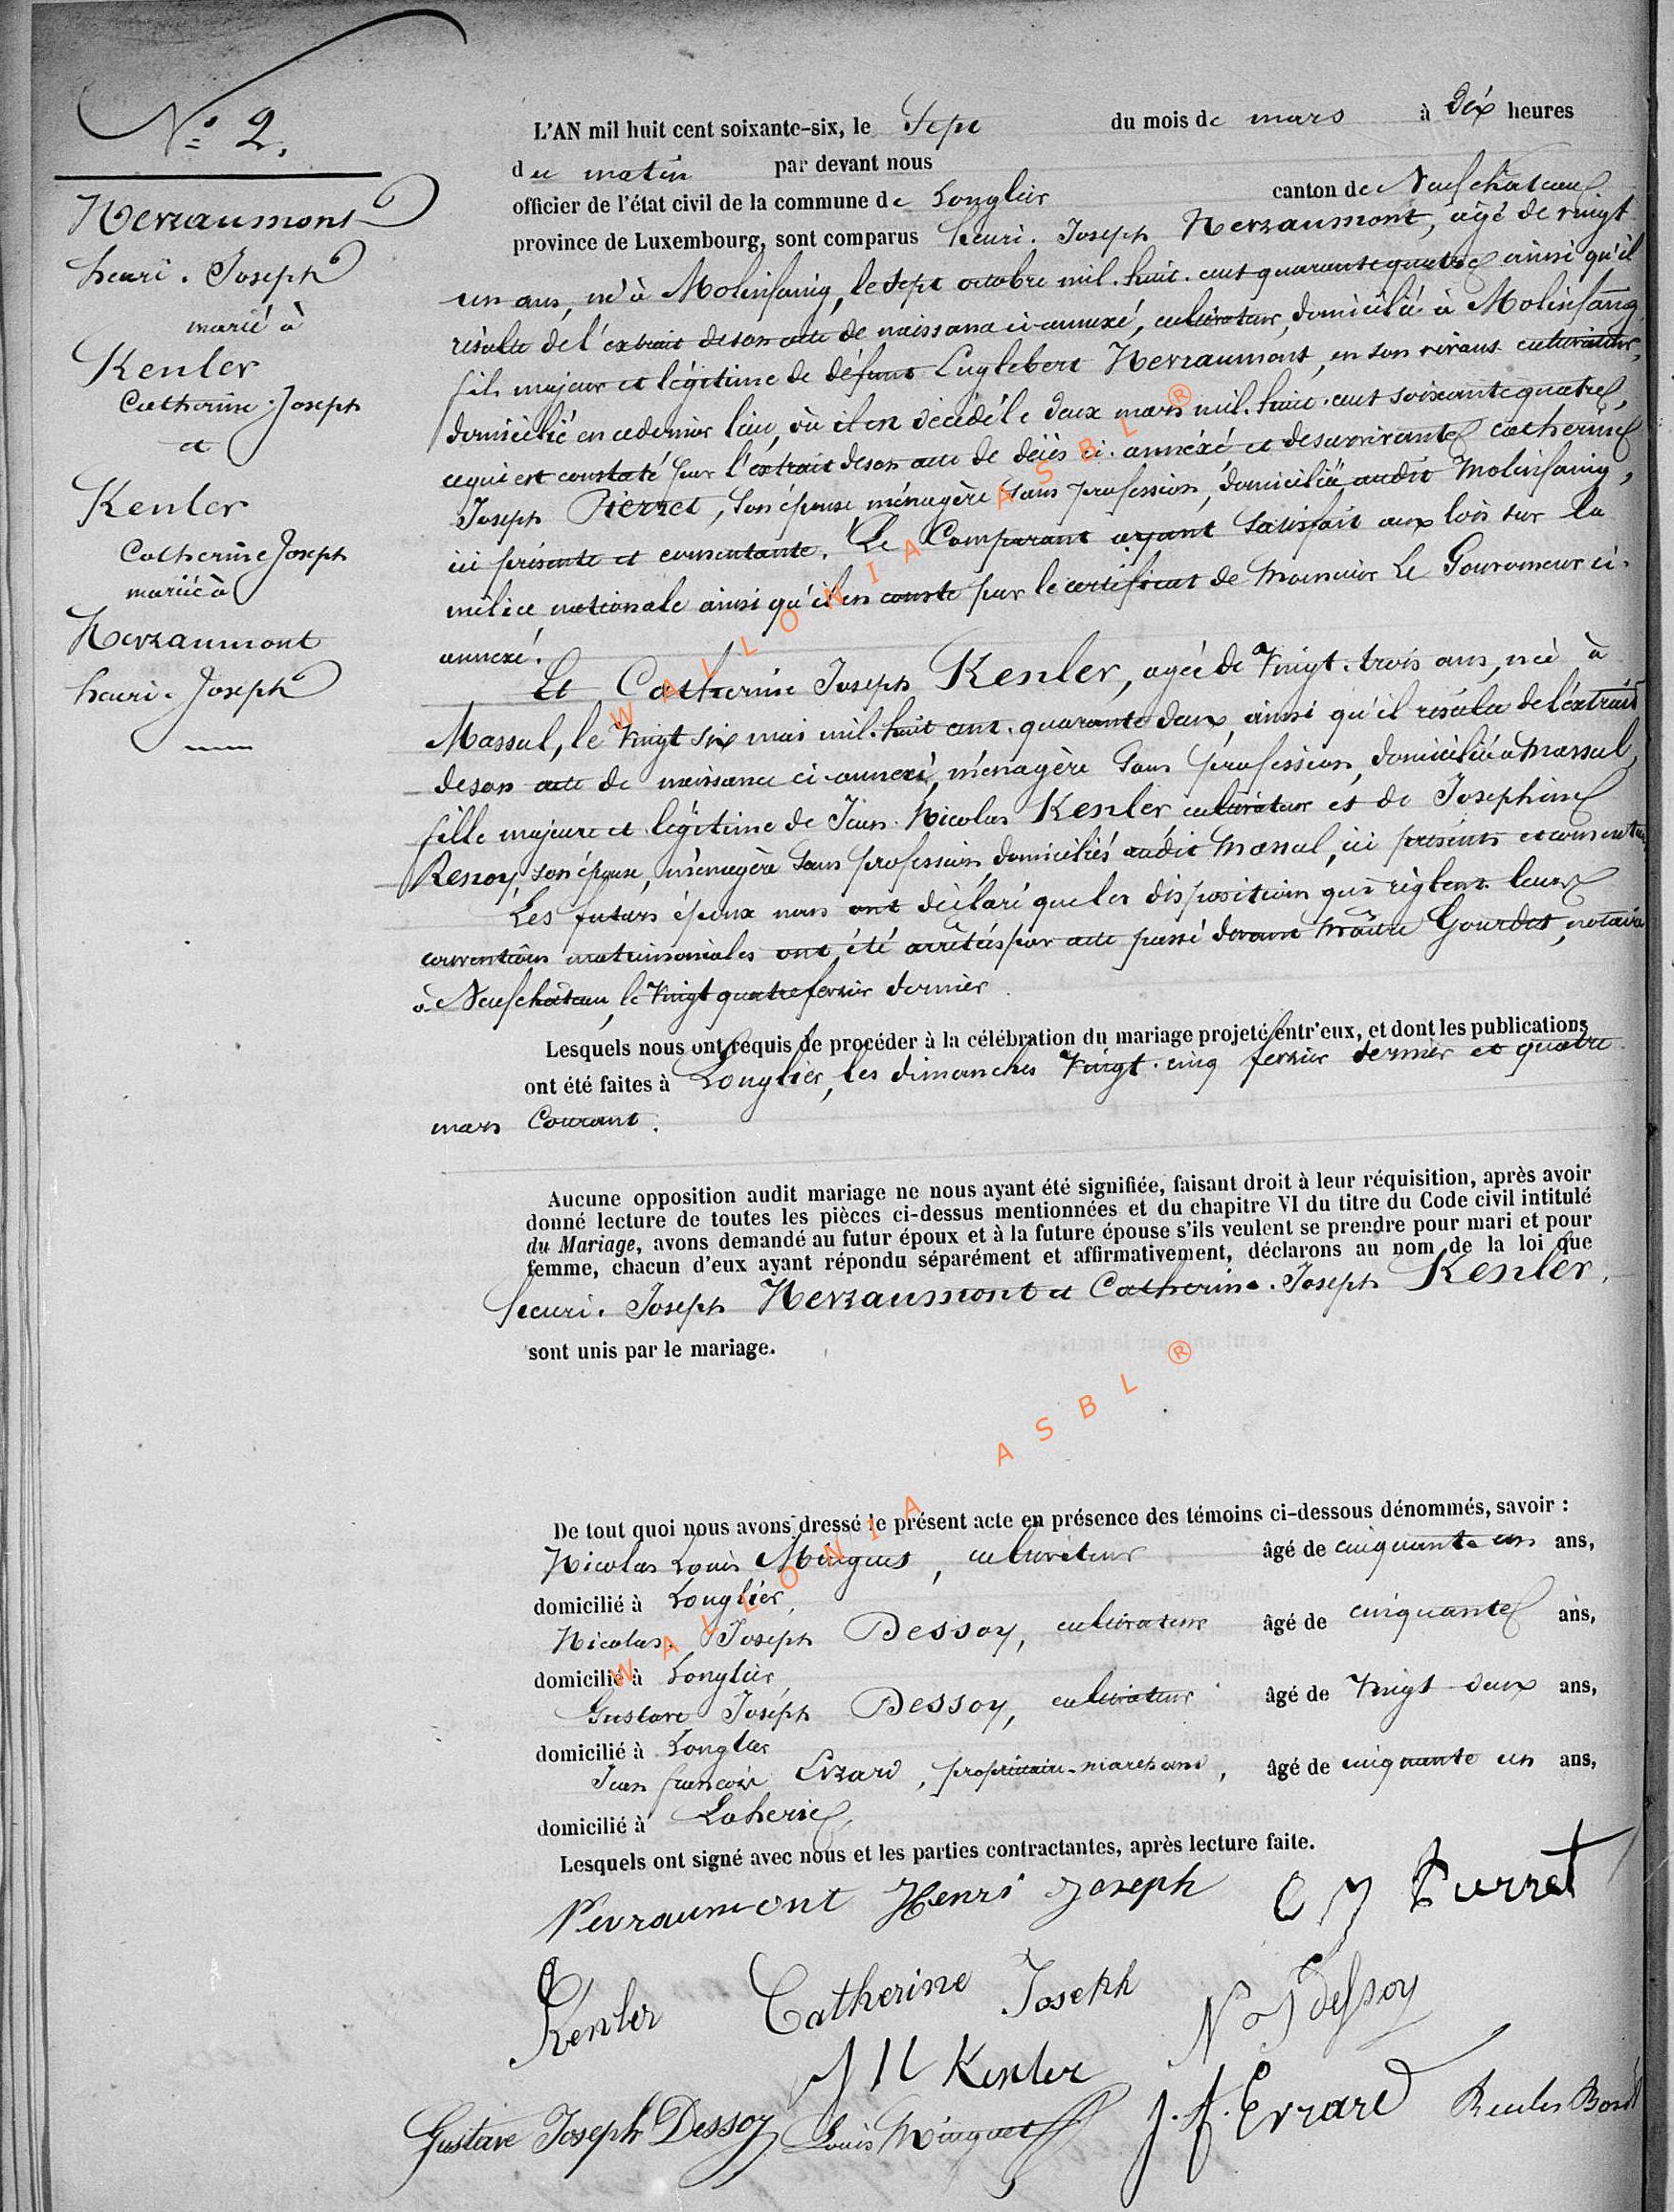 N° 2.
Nevraumont
henri. Joseph
marié à
Kenler
Catherine. Joseph
et
Kenler
Catherine Joseph
mariée à
Nevraumont
henri. Joseph
L'AN mil huit cent soixante-six, le Sept du mois de mars à Dix heures
du matin par devant nous
officier de l'état civil de la commune de Longlier canton de Neufchateau.
province de Luxembourg, sont comparus henri. Joseph Nevraumont, âgé de vingt
un ans, né à Molinfaing, le sept octobre mil. huit. cent quarante quatre ainsi qu'il
résulte de l'extrait de son acte de naissance ci-annexé, cultivateur, domicilié à Molinfaing,
fils majeur et légitime de défunt Englebert Nevraumont, en son vivant cultivateur,
domicilié en ce dernier lieu, où il est décédé le deux mars mil. huit. cent soixante quatre,
ce qui est constaté par l'extrait de son acte de décès ci-annexé et de survivante Catherine
Joseph Pierret, son épouse ménagère sans profession, domiciliée audit Molinfaing,
ici présente et consentante. Le Comparant ayant satisfait aux lois sur la
milice nationale ainsi qu'il en conste par le certificat de Monsieur Le Gouverneur ci-
annexé.
Et Catherine Joseph Kenler, agée de Vingt. trois ans, née à
Massul, le Vingt six mai mil. huit cent. quarante deux, ainsi qu'il résulte de l'extrait
de son acte de naissance ci-annexé, ménagère sans profession, domiciliée à Massul,
fille majeure et légitime de Jean. Nicolas Kenler cultivateur et de Josephine
Renoy, son épouse, ménagère sans profession, domiciliés audit Massul, ici présents et consentans
Les futurs époux nous ont déclaré que les dispositions qui règlent leurs
conventions matrimoniales ont été arrêtés par acte passé devant Maître Gourdet, notaire
à Neufchâteau, le Vingt quatre fevrier dernier.
Lesquels nous ont requis de procéder à la célébration du mariage projeté entr'eux, et dont les publications
ont été faites à Longlier, les dimanches Vingt. cinq fevrier dernier et quatre
mars Courant.
Aucune opposition audit mariage ne nous ayant été signifiée, faisant droit à leur réquisition, après avoir
donné lecture de toutes les pièces ci-dessus mentionnées et du chapitre VI du titre du Code civil intitulé
du Mariage, avons demandé au futur époux et à la future épouse s'ils veulent se prendre pour mari et pour
femme, chacun d'eux ayant répondu séparément et affirmativement, déclarons au nom de la loi que
henri. Joseph Nevraumont et Catherine. Joseph Kenler,
sont unis par le mariage.
De tout quoi nous avons dressé le présent acte en présence des témoins ci-dessous dénommés, savoir :
Nicolas Louis Minguet, cultivateur âgé de cinquante un ans,
domicilié à Longlier,
Nicolas. Joseph Dessoy, cultivateur âgé de cinquante ans,
domicilié à Longlier,
Gustave Joseph Dessoy, cultivateur âgé de Vingt deux ans,
domicilié à Longlier
Jean françois Evrard, propriétaire-marchand, âgé de cinquante un ans,
domicilié à Laherie,
Lesquels ont signé avec nous et les parties contractantes, après lecture faite.
Nevraumont Henri Joseph C J Pierret
Kenler Catherine Joseph N J Dessoy
J N Kenler
Gustave Joseph Dessoy Louis Minguet J. f. Evrard
WALLONIA ASBL ®
WALLONIA ASBL ®